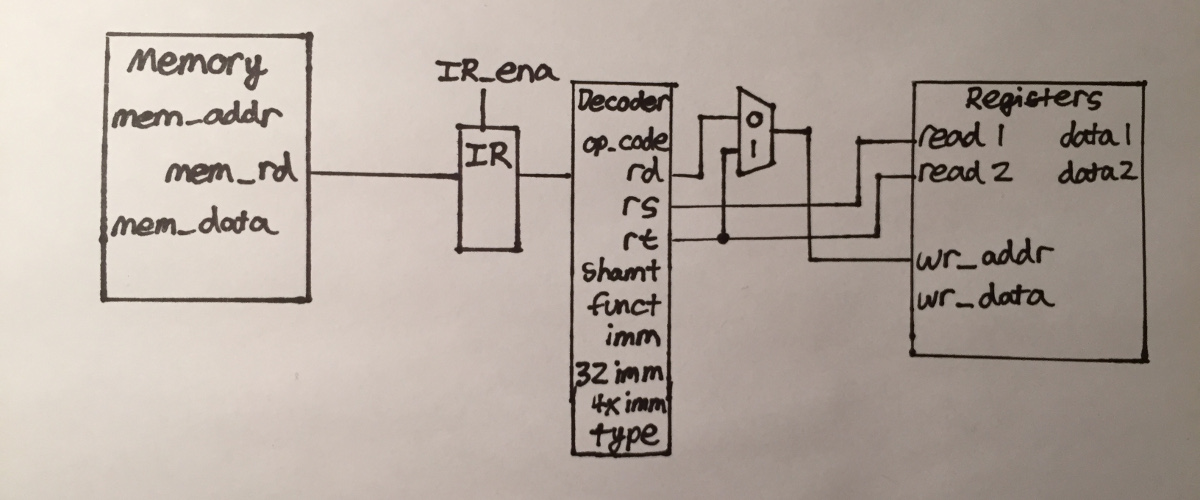 Memory
mem_addr
mem_rd
mem_data
IR_ena
IR
Decoder
op_code
rd
rs
rt
shamt
funct
imm
32 imm
4x imm
type
0
1
Registers
read 1 data 1
read 2 data 2
wr_addr
wr_data